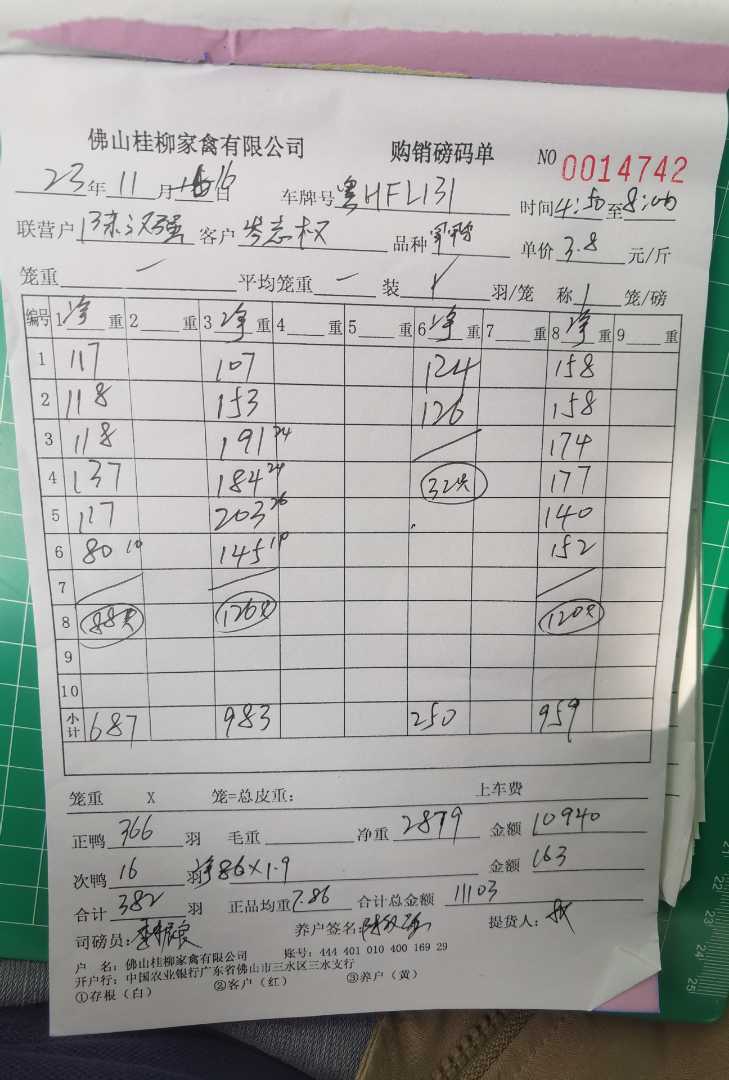 佛山桂柳家禽有限公司 购销磅码单 NO 0014742
23年11月16日 车牌号粤HFL131 时间4:50至8:00
联营户 陈汉强 客户 岑志权 品种 单价3.8元/斤
笼重 一 平均笼重 一 装 羽/笼 称 1 笼/磅
编号 1净重 2重 3净重 4重 5重 6净重 7重 8净重 9重
1 117 107 124 158
2 118 153 126 158
3 118 191 24 174
4 137 184 24 32只 177
5 117 203 26 140
6 80 10 145 19 152
7
8 88只 126只 120只
9
10
小计 687 983 250 959
笼重 X 笼=总皮重: 上车费
正鸭 366 羽 毛重 净重 2879 金额 10940
次鸭 16 羽 净86×1.9 金额 163
合计 382 羽 正品均重 7.86 合计总金额 11103
司磅员: 养户签名 提货人:
户 名: 佛山桂柳家禽有限公司 账号: 444 401 010 400 169 29
开户行: 中国农业银行广东省佛山市三水区三水支行
①存根(白) ②客户(红) ③养户(黄)
21
22
23
24
25